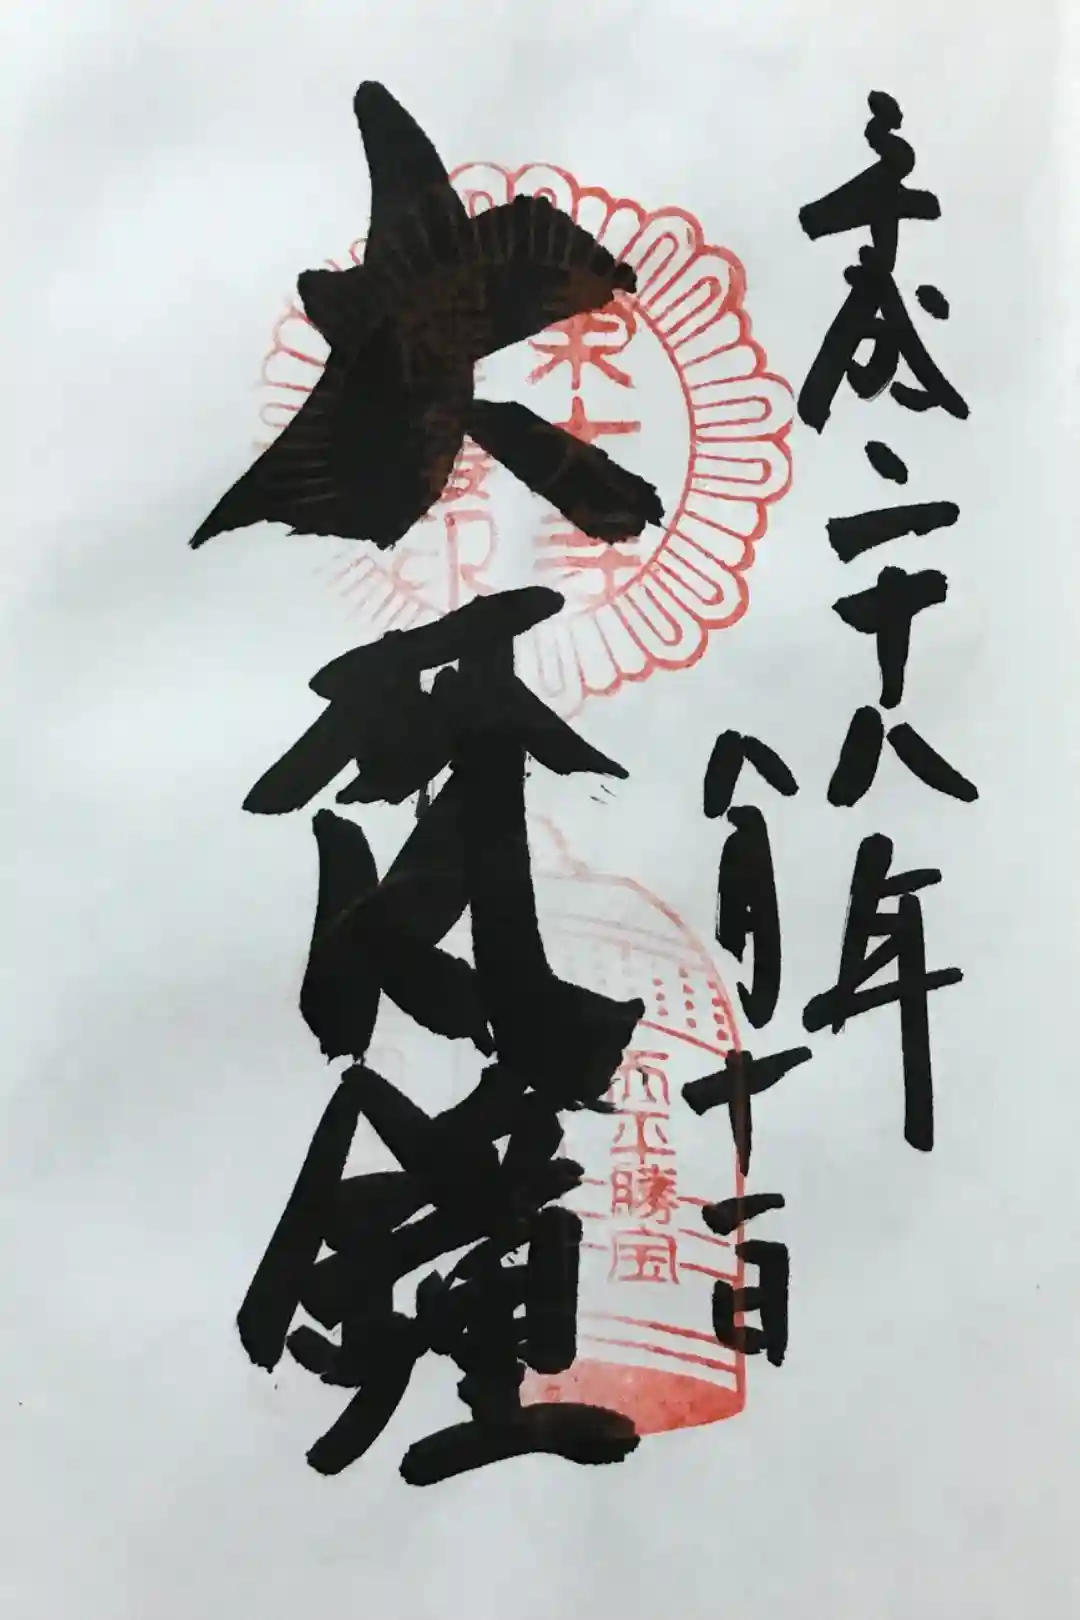 平成二十八年
八月十一日
大梵鐘
東大寺
天平勝宝